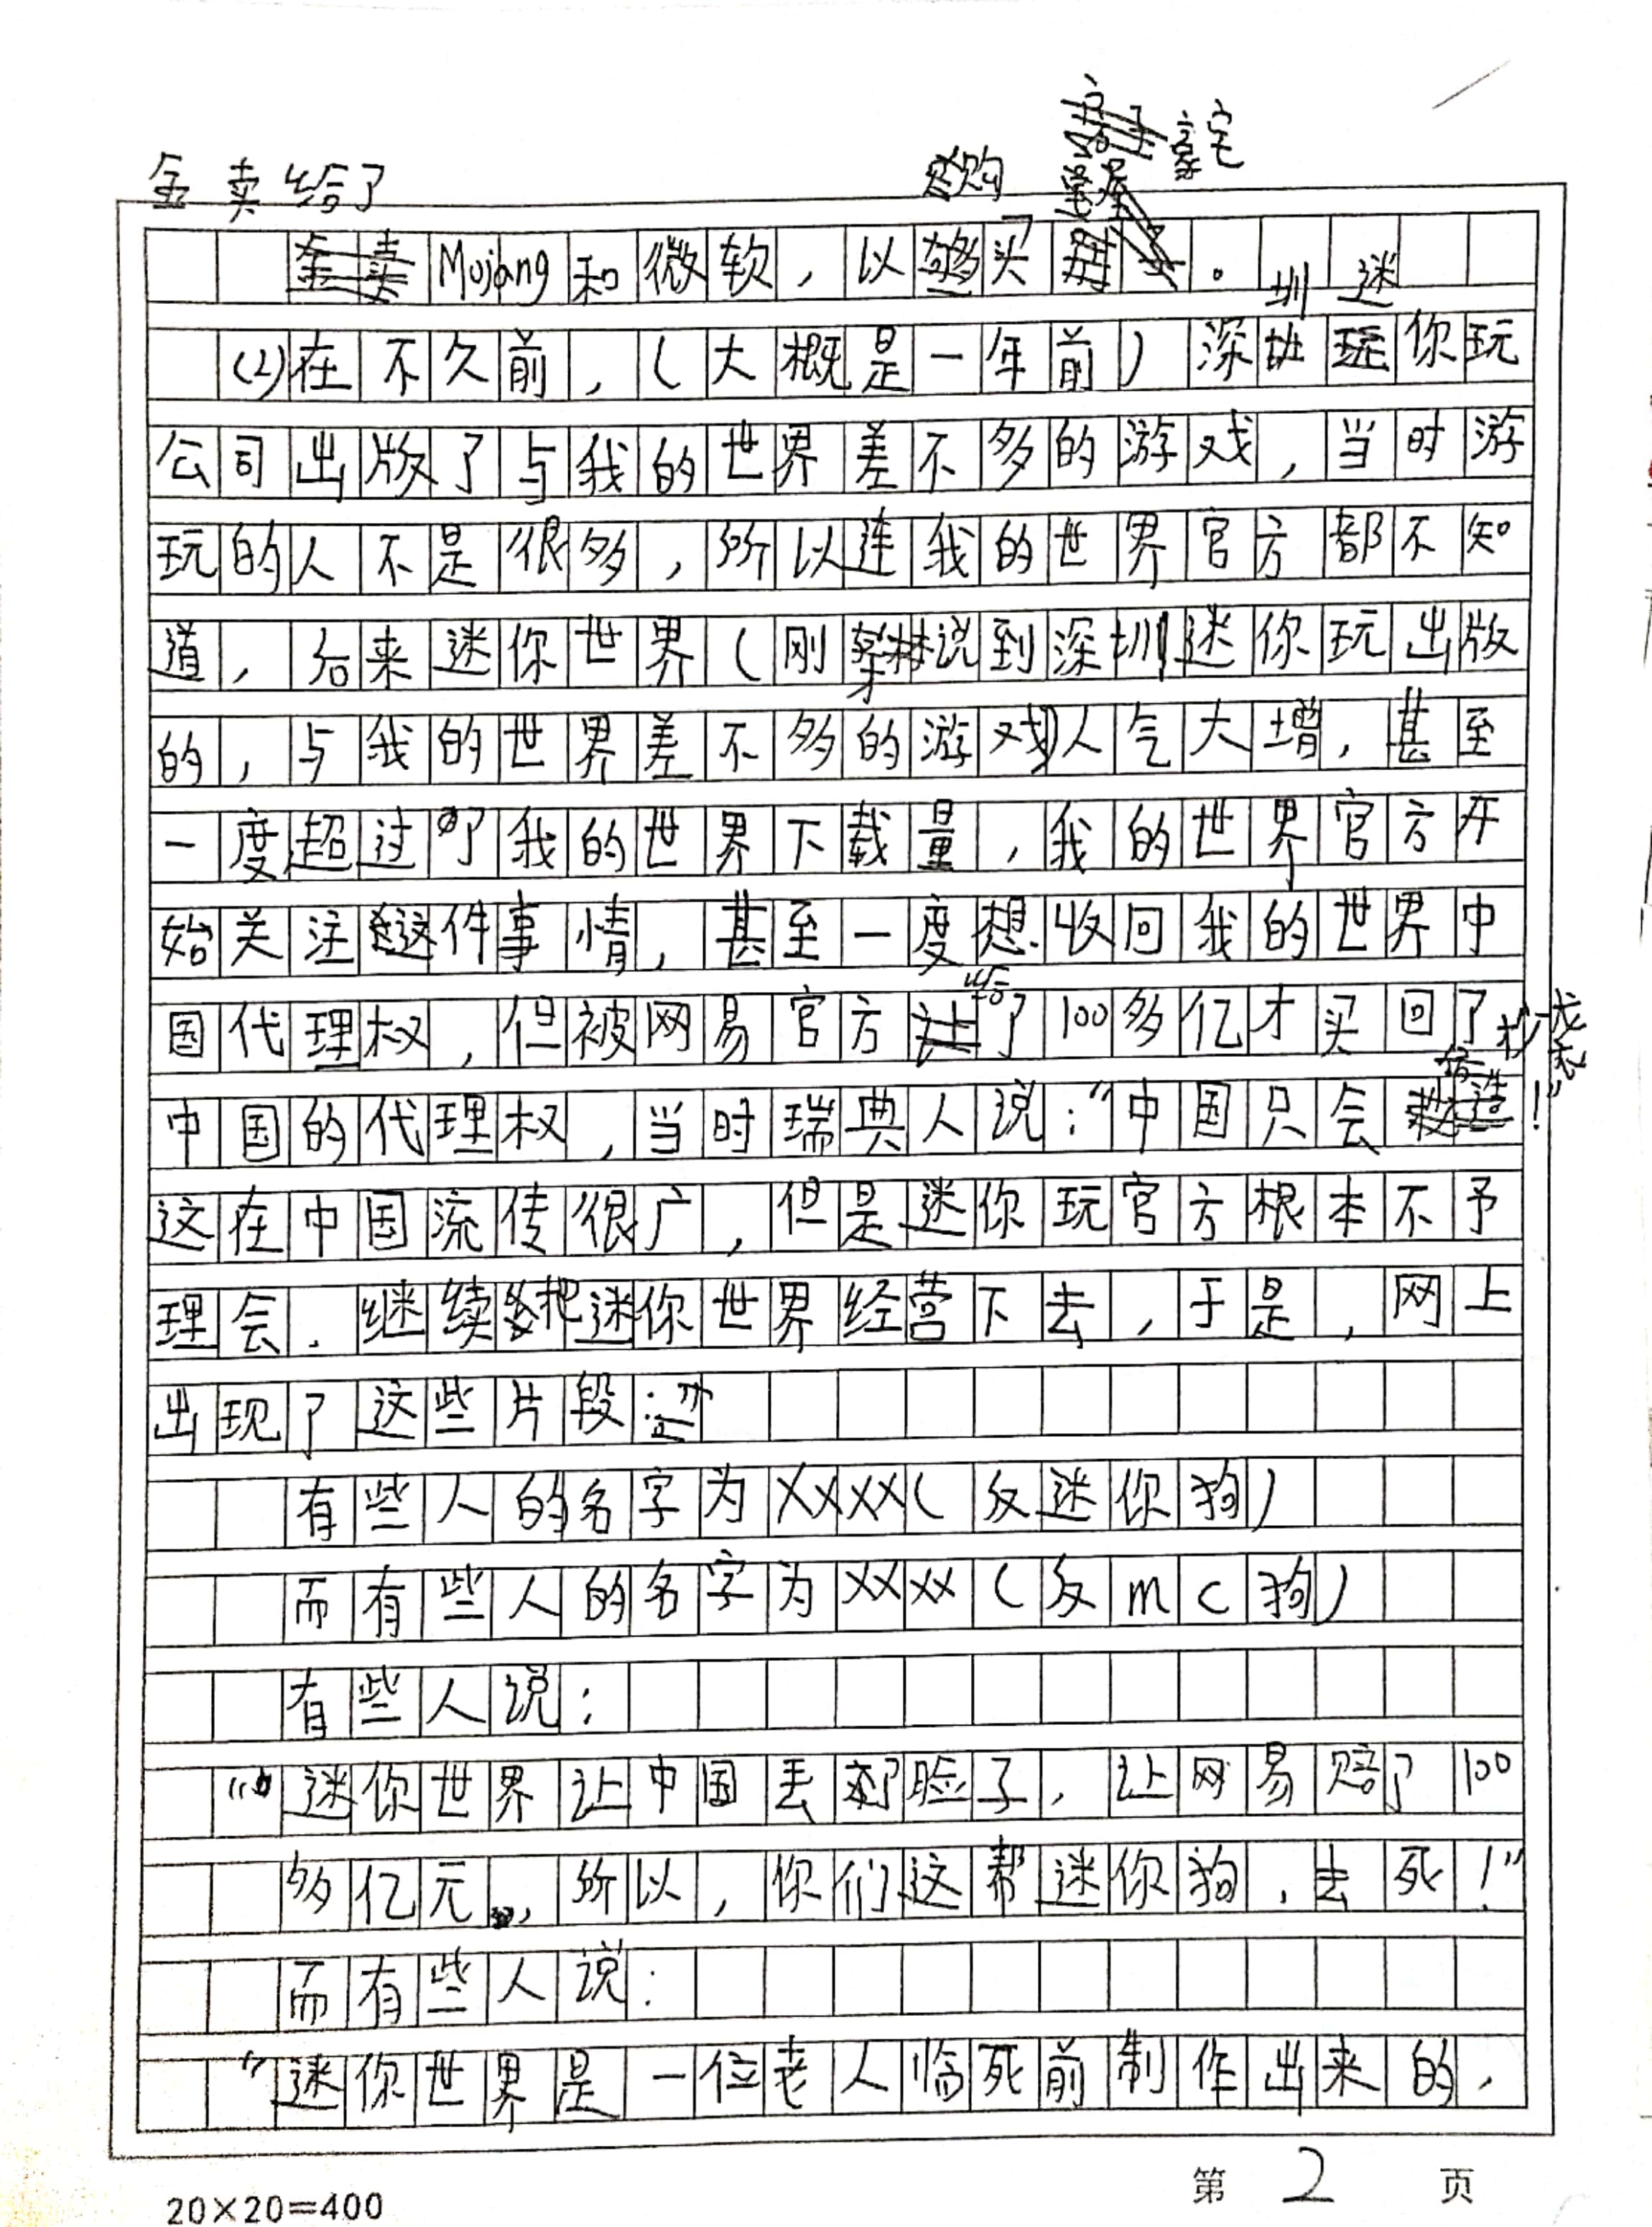 豪宅
金卖给了 购
Mojang和微软，以买。
圳 迷
(2)在不久前，（大概是一年前）深 你玩
公司出版了与我的世界差不多的游戏，当时游
玩的人不是很多，所以连我的世界官方都不知
道，后来迷你世界（刚说到深圳迷你玩出版
的，与我的世界差不多的游戏）人气大增，甚至
一度超过了我的世界下载量，我的世界官方开
始关注这件事情，甚至一度想收回我的世界中
给
国代理权，但被网易官方了100多亿才买回了
抄袭
中国的代理权，当时瑞典人说：“中国只会！”
这在中国流传很广，但是迷你玩官方根本不予
理会．继续把迷你世界经营下去，于是，网上
出现了这些片段：
有些人的名字为XXXX（反迷你狗）
而有些人的名字为XXXX（反mc狗）
有些人说：
“迷你世界让中国丢了脸子，让网易赔了100
多亿元，所以，你们这帮迷你狗，去死！”
而有些人说：
“迷你世界是一位老人临死前制作出来的，
第2页
20×20=400